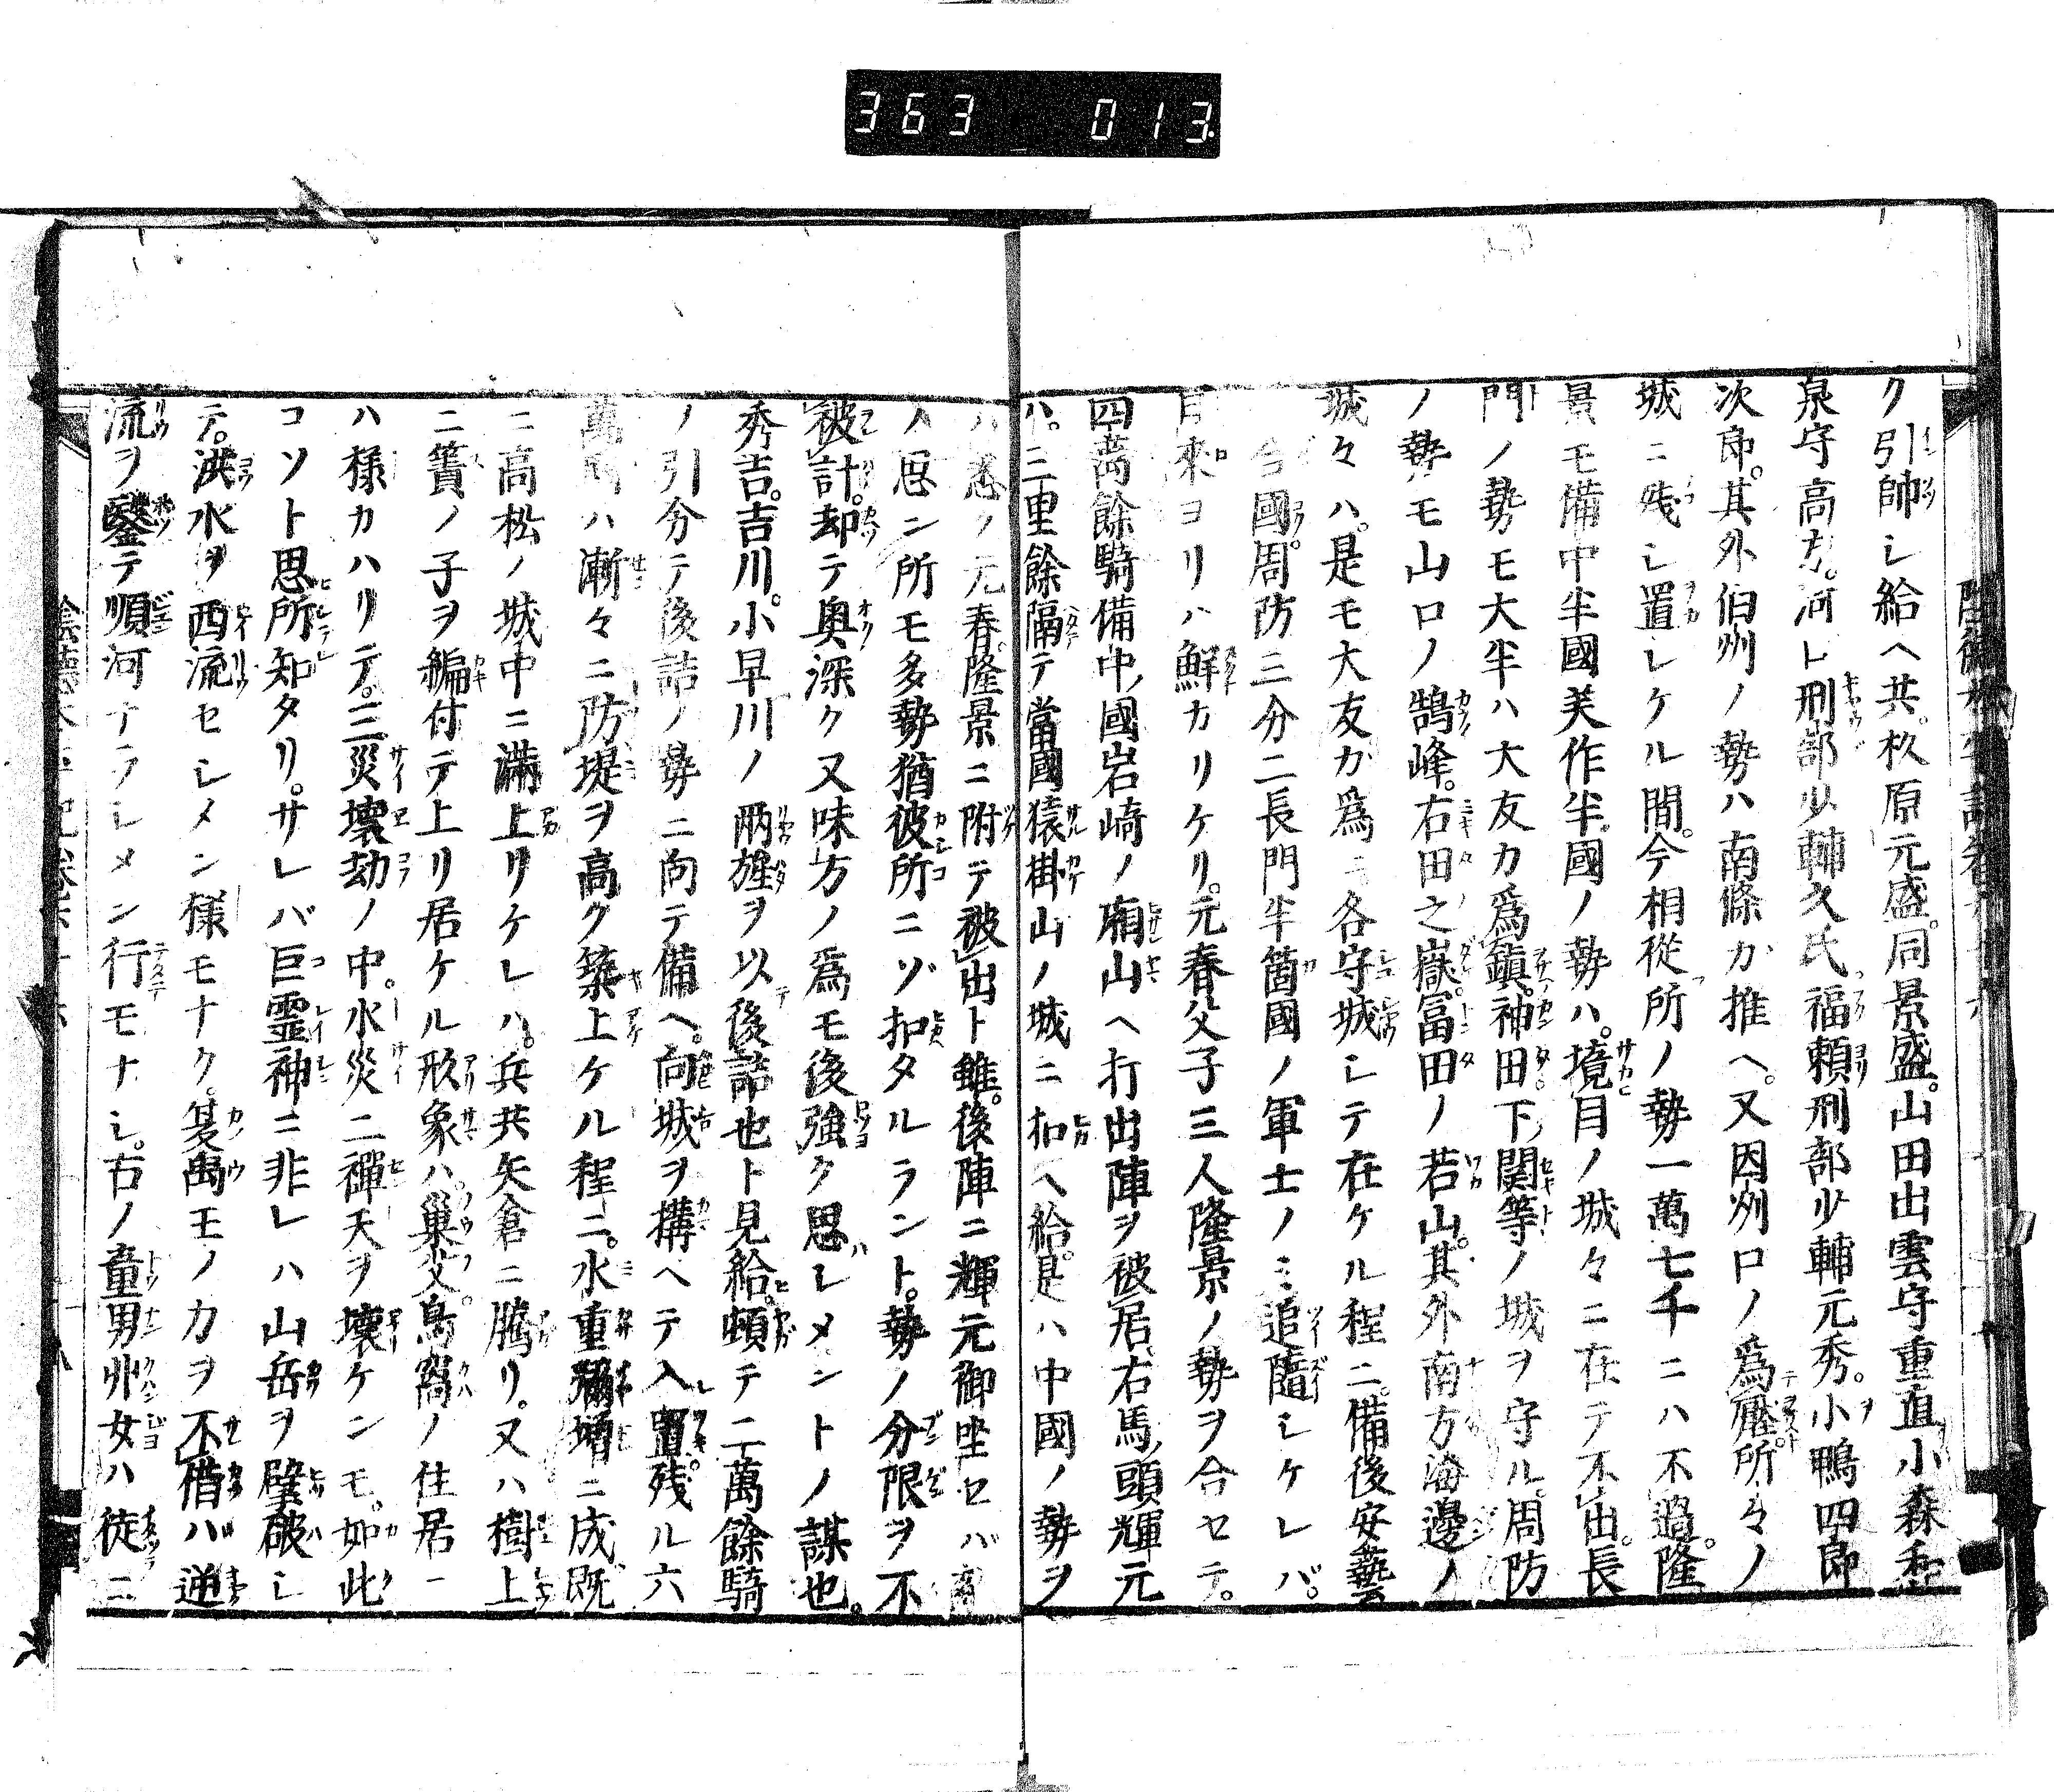 363 013
ク引帥シ給ヘ共。杦原元盛。同景盛。山田出雲守重直小森和
泉守高力。河レ刑部少輔久氏福頼刑部少輔元秀。小鴨四郎
次郎。其外伯州ノ勢ハ南條カ推ヘ。又因州口ノ為壓所々ノ
城ニ残シ置レケル間。今相從所ノ勢一萬七千ニハ不過。隆
景モ備中半國美作半國ノ勢ハ。境目ノ城々ニ在テ不出。長
門ノ勢モ大半ハ大友カ爲鎮。神田下関等ノ城ヲ守ル。周防
ノ勢モ山口ノ鵠峰。右田之嶽。冨田ノ若山。其外南方海邊ノ
城々ハ。是モ大友カ爲ニ各守城シテ在ケル程ニ。備後安藝
國。周防三分二長門半箇國ノ軍士ノミ追隨シケレバ。
來ヨリハ鮮カリケリ。元春父子三人隆景ノ勢ヲ合セテ。
四萬餘騎備中ノ國岩崎ノ廂山ヘ打出陣ヲ被居。右馬頭輝元
ハ。三里餘隔テ當國猿掛山ノ城ニ扣ヘ給。是ハ中國ノ勢ヲ
ハ悉ク元春。隆景ニ附テ被出ト雖。後陣ニ輝元御坐セバ
ノ思ン所モ多勢猶彼所ニゾ扣タルラント。勢ノ分限ヲ不
被計。却テ奥深ク又味方ノ爲モ後強ク思レメントノ謀也。
秀吉。吉川。小早川ノ兩旌ヲ以後詰也ト見給。頓テ二萬餘騎
ノ引分テ後詰ノ勢ニ向テ備ヘ。向城ヲ構ヘテ入置。残ル六
萬ハ漸々ニ防堤ヲ高ク築上ケル程ニ。水重彌増ニ成既
ニ高松ノ城中ニ滿上リケレハ。兵共矢倉ニ騰リ。又ハ樹上
ニ簀ノ子ヲ編付テ上リ居ケル形象ハ。巣父鳥窩ノ住居一
ハ様カハリテ。三災壊劫ノ中。水災二禪天ヲ壊ケンモ。如此
コソト思所知タリ。サレバ巨霊神ニ非レハ山岳ヲ擘破シ
テ。洪水ヲ西流セシメン様モナク。夏禹王ノ力ヲ不借ハ逆
流ヲ鑿テ順河ナラシメン行モナシ。右ノ童男丱女ハ徒ニ